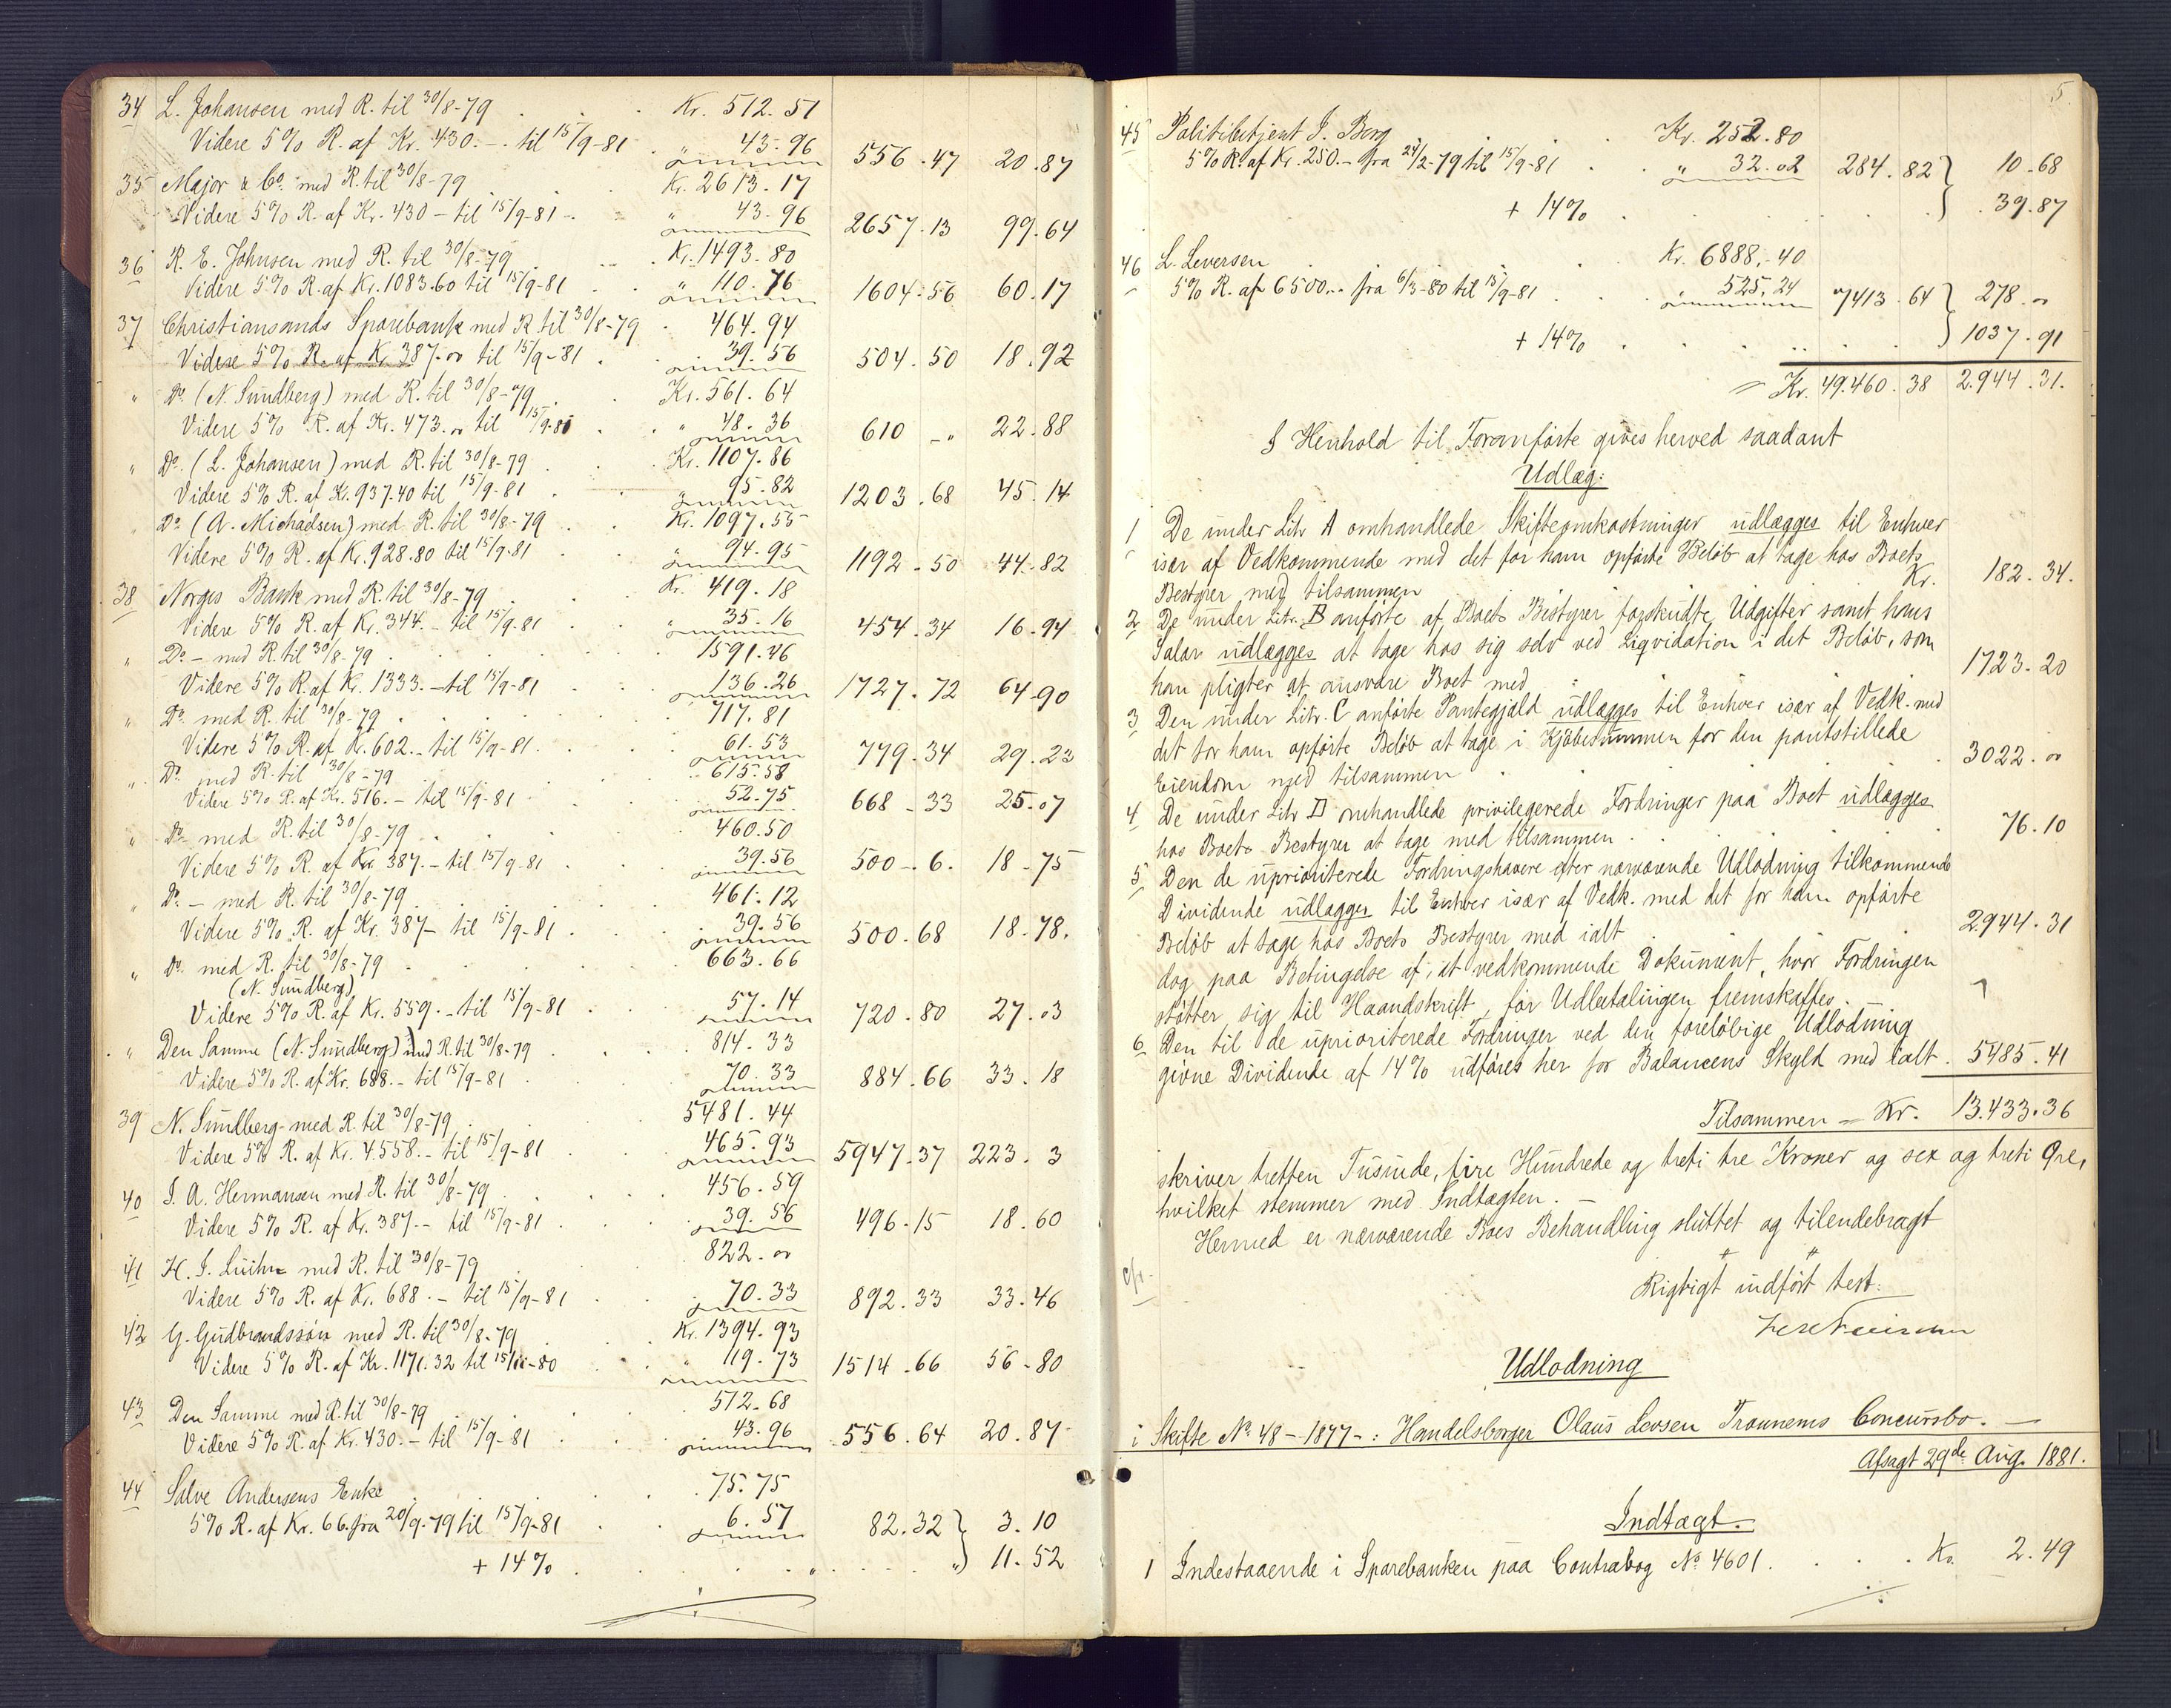 34 L. Johansen med R. til 30/8-79 . . Kr. 512.51
Videre 5% R. af Kr. 430.-. til 15/9-81 . " 43.96 556.47 20.87
35 Major & Co. med R. til 30/8-79 . . Kr. 2613.17
Videre 5% R. af Kr. 430 - til 15/9-81 - . " 43.96 2657.13 99.64
36 R. E. Johnsen med R. til 30/8-79 . . Kr. 1493.80
Videre 5% R. af Kr. 1083.60 til 15/9-81 . " 110.76 1604.56 60.17
37 Christiansands Sparebank med R. til 30/8-79 . 464.94
Videre 5% R. af Kr. 387.00 til 15/9-81 . . 39.56 504.50 18.92
" Do (N. Sundberg) med R. til 30/8-79 . Kr. 561.64
Videre 5% R. af Kr. 473.00 til 15/9-81 . " 48.36 610 - " 22.88
" Do. (L. Johansen) med R. til 30/8-79 . Kr. 1107.86
Videre 5% R. af Kr. 937.40 til 15/9-81 . " 95.82 1203.68 45.14
" Do (A. Michaelsen) med R. til 30/8-79 . Kr. 1097.55
Videre 5% R. af Kr. 928.80 til 15/9-81 . " 94.95 1192.50 44.82
38 Norges Bank med R. til 30/8-79 . Kr. 419.18
Videre 5% R. af Kr. 344.- til 15/9-81 . " 35.16 454.34 16.94
" Do - med R. til 30/8-79 . . 1591.46
Videre 5% R. af Kr. 1333.- til 15/9-81 . . 136.26 1727.72 64.90
" Do med R. til 30/8-79 . . 717.81
Videre 5% R. af Kr. 602.- til 15/9-81 . . 61.53 779.34 29.23
" Do med R. til 30/8-79 . . 615.58
Videre 5% R. af Kr. 516.- til 15/9-81 . . 52.75 668.33 25.07
" Do med R. til 30/8-79 . . 460.50
Videre 5% R. af Kr. 387.- til 15/9-81 . . 39.56 500-.6. 18.75
" Do - med R. til 30/8-79 . . 461.12
Videre 5% R. af Kr. 387- til 15/9-81 . . 39.56 500.68 18.78.
" Do med R. til 30/8-79 . . 663.66
(N. Sundberg)
Videre 5% R. af Kr. 559.- til 15/9-81 . . 57.14 720.80 27.03
" Den Samme (N. Sundberg) med R. til 30/8-79 . . 814.33
Videre 5% R. af Kr. 688.- til 15/9-81 . . 70.33 884.66 33.18
39 N. Sundberg med R. til 30/8-79 . . 5481.44
Videre 5% R. af Kr. 4558.- til 15/9-81 . . 465.93 5947.37 223.3
40 J. A. Hermansen med R. til 30/8-79 . . 456.59
Videre 5% R. af Kr. 387.- til 15/9-81 . . 39.56 496.15 18.60
41 H. J. med R. til 30/8-79 . . 822.00
Videre 5% R. af Kr. 688.- til 15/9-81 . . 70.33 892.33 33.46
42 G. Gudbrandssøn med R. til 30/8-79 . Kr. 1394.93
Videre 5% R. af Kr. 1171.32 til -80 . " 119.73 1514.66 56.80
43 Den Samme med R. til 30/8-79 . . 512.68
Videre 5% R. af Kr. 430.- til 15/9-81 . . 43.96 556.64 20.87
44 Salve Andersens Enke . . 75.75
5% R. af Kr. 66. fra 20/9-79 til 15/9-81 . . 6.57 82.32 } 3.10
+ 14% . . . . " } 11.52
5.
45 Politibetjent J. Berg . . Kr. 252.80
5% R. af Kr. 250.- fra 24/2-79 til 15/9-81 . . " 32.02 284.82 } 10.68
+ 14% . . . . } 39.87
46 L. Leversen . . Kr. 6888.40
5% R. af 6500.- fra 6/3-80 til 15/9-81 . . " 525.24 7413.64 } 278.00
+ 14% . . . . } 1037.91
= Kr. 49.460.38 2.944.31.
I Henhold til Foranførte gives herved saadant
Udlæg:
1 De under Litr A omhandlede Skifteomkostninger udlægges til Enhver
især af Vedkommende med det for ham opførte Beløb at tage hos Boets
Bestyrer med tilsammen Kr. 182.34.
2 De under Litr. B anførte af Boets Bestyrer forskudte Udgifter samt hans
Salær udlægges at tage hos sig selv ved Liqvidation i det Beløb, som
han pligter at ansvare Boet med . . . 1723.20
3 Den under Litr. C anførte Pantegjæld udlægges til Enhver især af Vedk. med
det for ham opførte Beløb at tage i Kjøbesummen for den pantstillede
Eiendom med tilsammen . . . 3022.00
4 De under Litr D omhandlede privilegerede Fordringer paa Boet udlægges
hos Boets Bestyrer at tage med tilsammen . . 76.10
5 Den de uprioriterede Fordringshavere efter nærværende Udlodning tilkommende
Dividende udlægges til Enhver især af Vedk. med det for ham opførte
Beløb at tage hos Boets Bestyrer med ialt . . 2944.31
dog paa Betingelse af, at vedkommende Dokument, hvor Fordringen
støtter sig til Haandskrift, før Udbetalingen fremskaffes.
6 Den til de uprioriterede Fordringer ved den foreløbige Udlodning
givne Dividende af 14% udføres her for Balancens Skyld med ialt . 5485.41
Tilsammen = Kr. 13.433.36
skriver tretten Tusinde, fire Hundrede og treti tre Kroner og sex og treti Øre,
hvilket stemmer med Indtægten. -
Hermed er nærværende Boes Behandling sluttet og tilendebragt
Rigtigt indført test:
Udlodning
i Skifte No 48 - 1877 - : Handelsborger Olaus Levsen Trounems Concursbo. -
Afsagt 29de Aug. 1881.
Indtægt.
1 Indestaaende i Sparebanken paa Contrabog No 4601 . . . Kr. 2.49